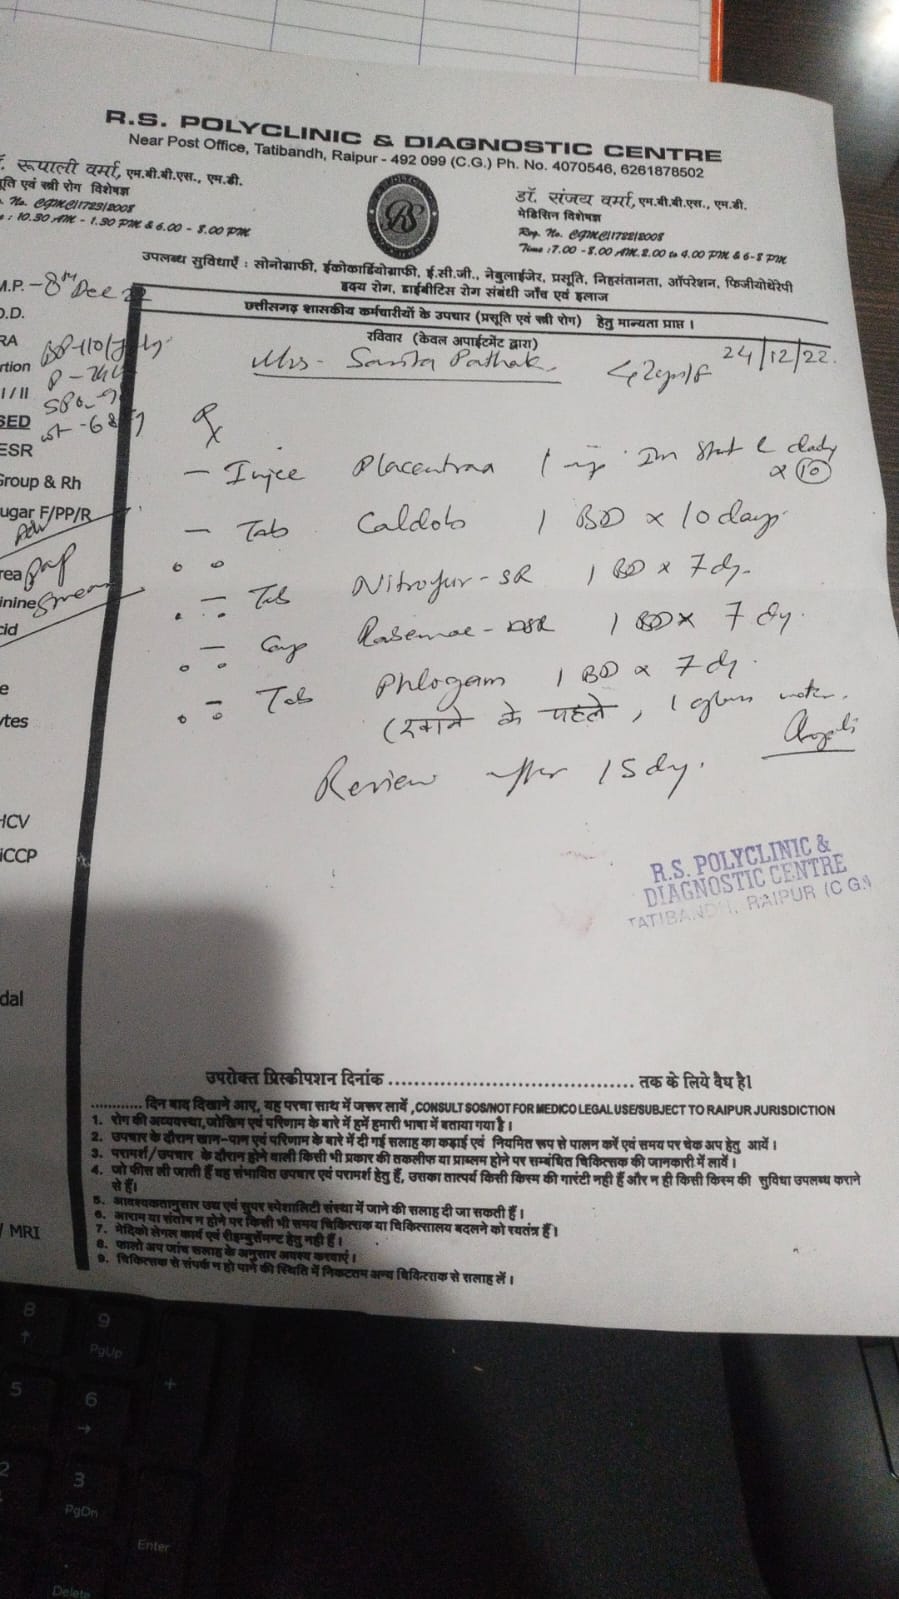 R.S. POLYCLINIC & DIAGNOSTIC CENTRE
Near Post Office, Tatibandh, Raipur - 492 099 (C.G.) Ph. No. 4070546, 6261878502
रूपाली वर्मा, एम.बी.बी.एस., एम.डी.
एवं स्त्री रोग विशेषज्ञ
No. CGMC/1723/2008
: 10.30 AM - 1.30 PM & 6.00 - 8.00 PM
डॉ. संजय वर्मा, एम.बी.बी.एस., एम.डी.
मेडिसिन विशेषज्ञ
Reg. No. CGMC/1722/2008
Time : 7.00 - 8.00 AM. 2.00 to 4.00 PM & 6-8 PM
उपलब्ध सुविधाएँ : सोनोग्राफी, ईकोकार्डियोग्राफी, ई.सी.जी., नेबुलाईजेर, प्रसूति, निहसंतानता, ऑपरेशन, फिजीयोथेरेपी
हृदय रोग, डाईबीटिस रोग संबंधी जाँच एवं इलाज
छत्तीसगढ़ शासकीय कर्मचारीयों के उपचार (प्रसूति एवं स्त्री रोग) हेतु मान्यता प्राप्त ।
रविवार (केवल अपाईटमेंट द्वारा)
M.P. - 8th Dec
Mrs - Sarita Pathak 42yrs/F 24/12/22.
I / II
ESR
Group & Rh
F/PP/R
Rx
- Injec Placentraa 1 Im Stat & daily x 10
- Tab Caldob 1 BD x 10 days
- Tab Nitrofur-SR 1 BD x 7 dy.
- Cap Rabemac-DSR 1 BD x 7 dy.
- Tab Phlogam 1 BD x 7 dy.
(खाने के पहले, 1 glass water.
Review after 15 dy.
HCV
iCCP
R.S. POLYCLINIC &
DIAGNOSTIC CENTRE
TATIBANDH, RAIPUR (C.G.)
/ MRI
उपरोक्त प्रिस्क्रीपशन दिनांक ................................... तक के लिये वैध है।
............ दिन बाद दिखाने आए, यह परचा साथ में जरूर लावें , CONSULT SOS/NOT FOR MEDICO LEGAL USE/SUBJECT TO RAIPUR JURISDICTION
1. रोग की अव्यवस्था, जोखिम एवं परिणाम के बारे में हमें हमारी भाषा में बताया गया है।
2. उपचार के दौरान खान-पान एवं परिणाम के बारे में दी गई सलाह का कड़ाई एवं नियमित रूप से पालन करें एवं समय पर चेक अप हेतु आयें।
3. परामर्श/उपचार के दौरान होने वाली किसी भी प्रकार की तकलीफ या प्राब्लम होने पर सम्बंधित चिकित्सक की जानकारी में लावें।
4. जो फीस ली जाती हैं वह संभावित उपचार एवं परामर्श हेतु हैं, उसका तात्पर्य किसी किस्म की गारंटी नही हैं और न ही किसी किस्म की सुविधा उपलब्ध कराने
से हैं।
5. आवश्यकतानुसार उच्च एवं सुपर स्पेशालिटी संस्था में जाने की सलाह दी जा सकती हैं।
6. आराम या संतोष न होने पर किसी भी समय चिकित्सक या चिकित्सालय बदलने को स्वतंत्र हैं।
7. मेडिको लेगल कार्य एवं रीइम्बुर्समेन्ट हेतु नही हैं।
8. फालो अप जांच सलाह के अनुसार अवश्य करवाएं।
9. चिकित्सक से संपर्क न हो पाने की स्थिति में निकटतम अन्य चिकित्सक से सलाह लें।
8
9
PgUp
5
6
+
2
3
PgDn
Enter
Delete